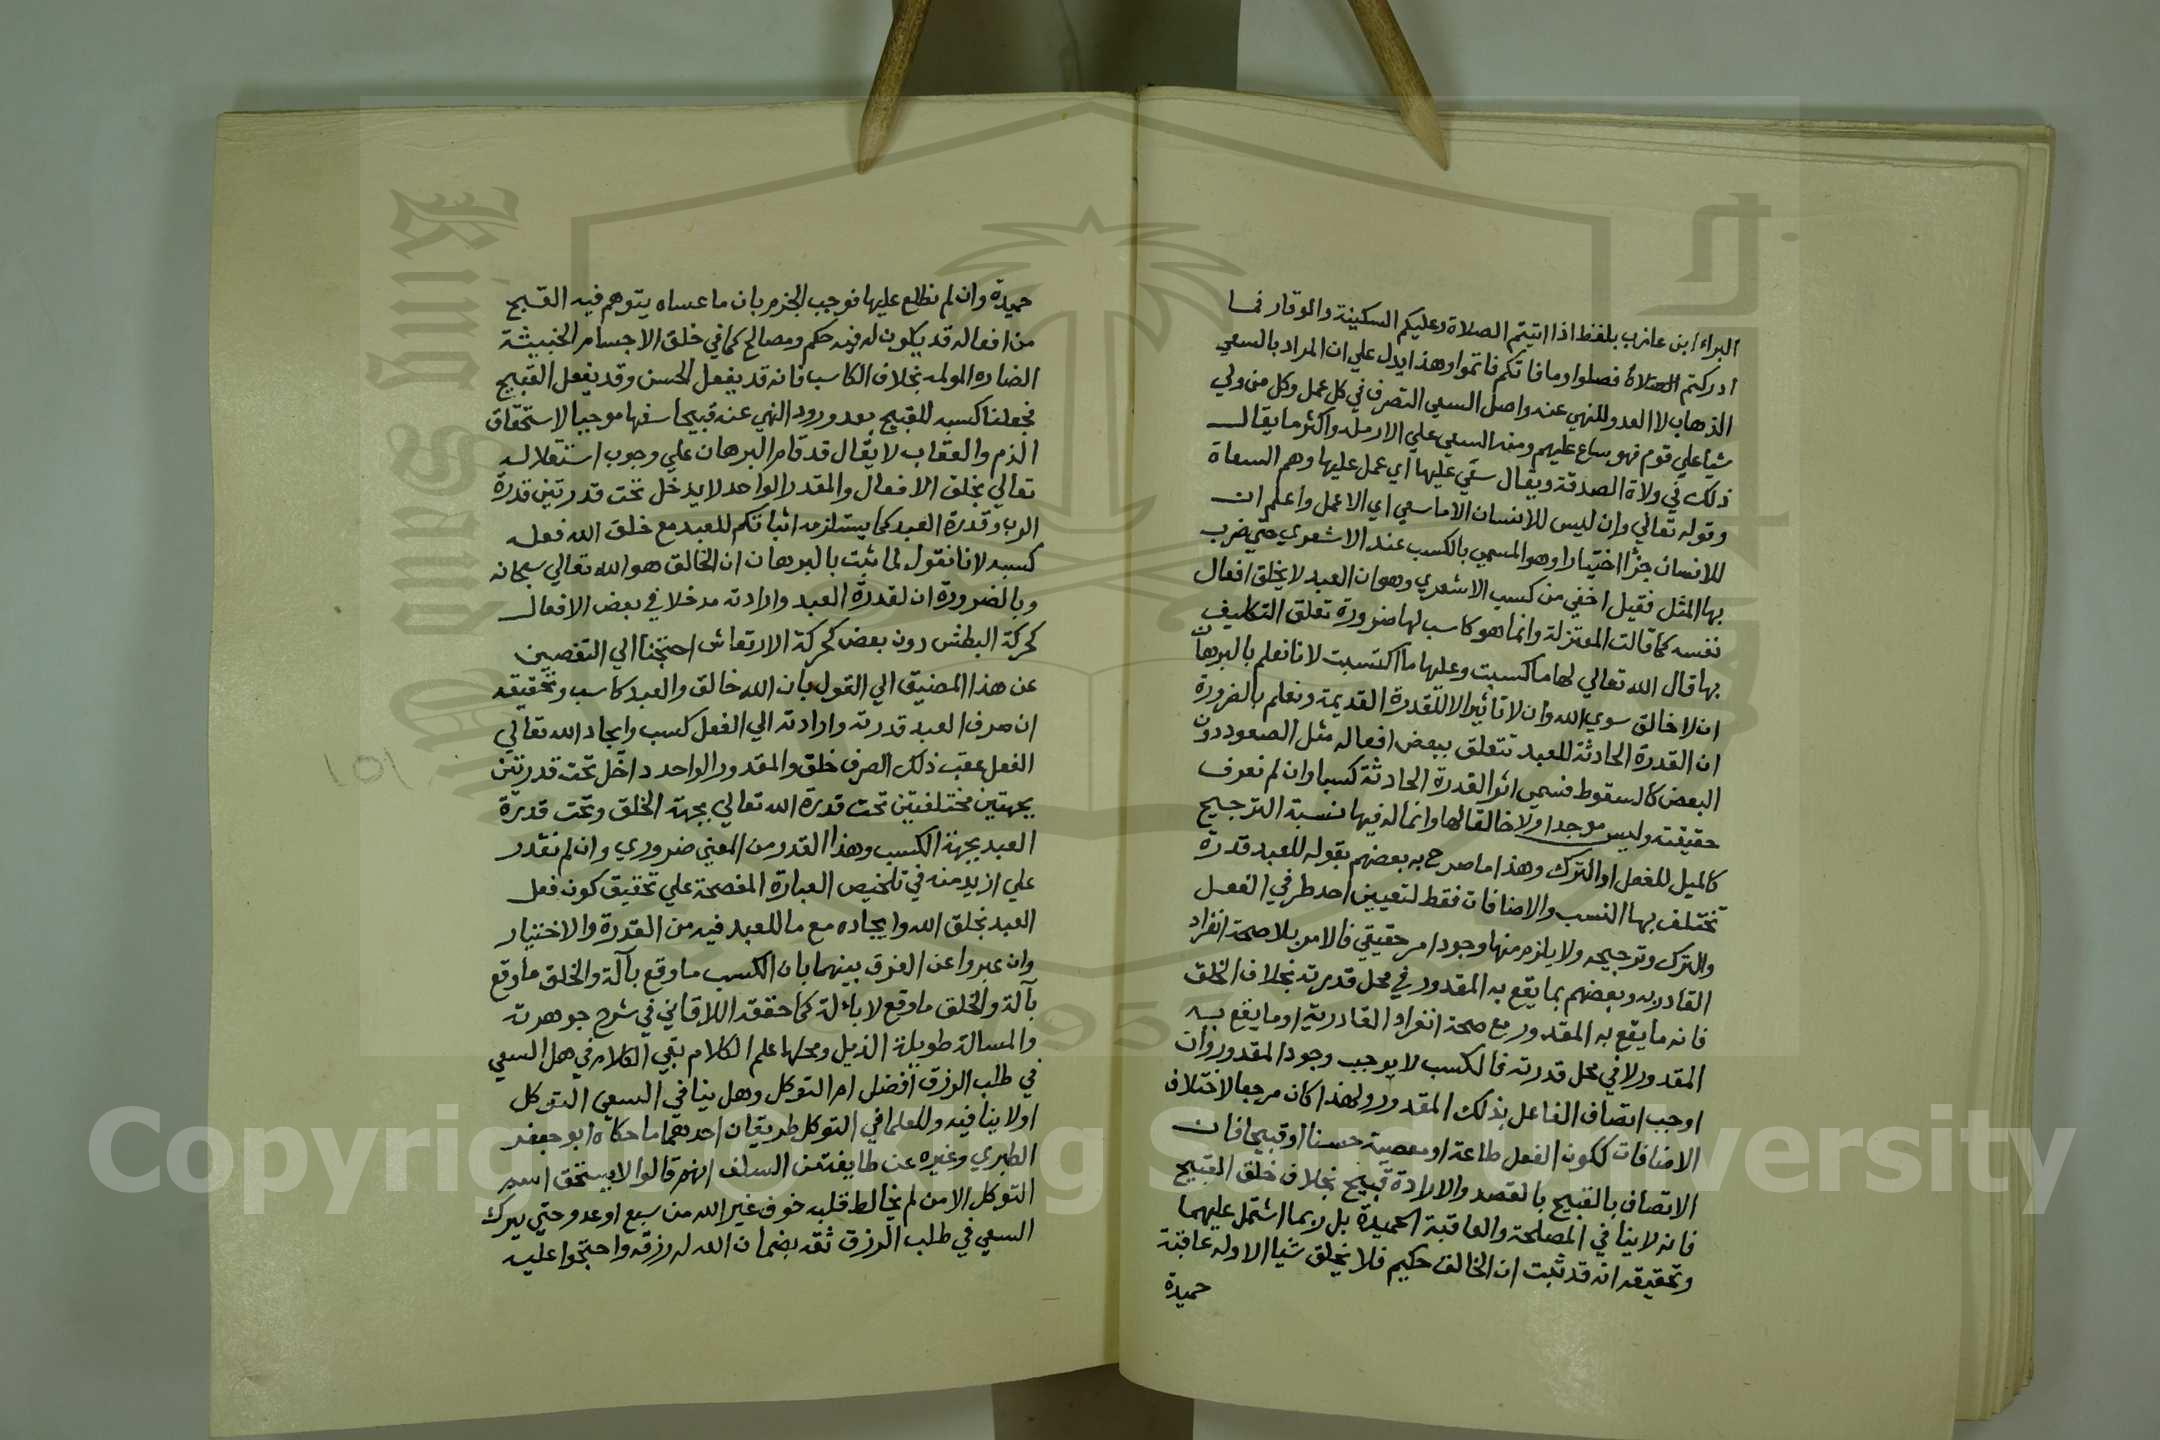 البراء ابن عازب بلفظ اذا اتيتم الصلاة وعليكم السكينة والوقار فما
ادركتم الصلاة فصلوا وما فاتكم فاتموا وهذا يدل علي ان المراد بالسعي
الذهاب لا العدو للنهي عنه واصل السعي التصرف في كل عمل وكل من ولي
شيا علي قوم فهو ساع عليهم ومنه السعي علي الارملة واكثر ما يقال
ذلك في ولاة الصدقة ويقال سعي عليها اي عمل عليها وهم السعاة
وقوله تعالي وان ليس للانسان الا ما سعي اي الا عمل واعلم ان
للانسان جزأ اختيارا وهو المسمي بالكسب عند الاشعري حتي ضرب
بها المثل فقيل اخفي من كسب الاشعري وهو ان العبد لا يخلق افعال
نفسه كما قالت المعتزلة وانما هو كاسب لها ضرورة تعلق التكليف
بها قال الله تعالي لها ما كسبت وعليها ما اكتسبت لانا نعلم بالبرهان
ان لا خالق سوي الله وان لا تاثير الا للقدرة القديمة ونعلم بالضرورة
ان القدرة الحادثة للعبد تتعلق ببعض افعاله مثل الصعود دون
البعض كالسقوط فسمي اثر القدرة الحادثة كسبا وان لم نعرف
حقيقته وليس موجدا ولا خالقا لها وانما له فيها نسبة الترجيح
كالميل للفعل او الترك وهذا ما صرح به بعضهم بقوله للعبد قدرة
تختلف بها النسب والاضافات فقط لتعيين احد طرفي الفعل
والترك وترجيحه ولا يلزم منها وجود امر حقيقي فالامر بلا صحة انفراد
القادر به وبعضهم بما يقع به المقدور في محل قدرته بخلاف الخلق
فانه ما يقع به المقدور مع صحة انفراد القادر به او ما يقع به
المقدور لا في محل قدرته فالكسب لا يوجب وجود المقدور وان
اوجب اتصاف الفاعل بذلك المقدور ولهذا كان مرجعا لاختلاف
الاضافات ككون الفعل طاعة او معصية حسنا او قبيحا فان
الاتصاف بالقبيح بالقصد والارادة قبيح بخلاف خلق القبيح
فانه لا ينافي المصلحة والعاقبة الحميدة بل ربما اشتمل عليهما
وتحقيقه انه قد ثبت ان الخالق حكيم فلا يخلق شيا الا وله عاقبة
حميدة
حميدة وان لم نطلع عليها فوجب الجزم بان ما عساه يتوهم فيه القبيح
من افعاله قد يكون له فيه حكم ومصالح كما في خلق الاجسام الخبيثة
الضاره المولمه بخلاف الكاسب فانه قد يفعل الحسن وقد يفعل القبيح
فجعلنا كسبه للقبيح بعد ورود النهي عنه قبيحا سفها موجبا لاستحقاق
الذم والعقاب لا يقال قد قام البرهان علي وجوب استقلاله
تعالي بخلق الافعال والمقدور الواحد لا يدخل تحت قدرتين قدرة
الرب وقدرة العبد كما يستلزمه اثباتكم للعبد مع خلق الله فعل
كسبه لانا نقول لما ثبت بالبرهان ان الخالق هو الله تعالي سبحانه
وبالضرورة ان لقدرة العبد وارادته مدخلا في بعض الافعال
كحركة البطش دون بعض كحركة الارتعاش احتجنا الي التفصين
عن هذا المضيق الي القول بان الله خالق والعبد كاسب وتحقيقه
ان صرف العبد قدرته وارادته الي الفعل كسب وايجاد الله تعالي
الفعل عقب ذلك الصرف خلق والمقدور الواحد داخل تحت قدرتين
بجهتين مختلفتين تحت قدرة الله تعالي بجهة الخلق وتحت قدرة
العبد بجهة الكسب وهذا القدر من المعني ضروري وان لم نقدر
علي ازيد منه في تلخيص العبارة المفصحة علي تحقيق كونه فعل
العبد بخلق الله وايجاده مع ما للعبد فيه من القدرة والاختيار
وان عبروا عن الفرق بينهما بان الكسب ما وقع بآلة والخلق ما وقع
بآلة والخلق ما وقع لا بالة كما حققه اللاقاني في شرح جوهرته
والمسالة طويلة الذيل ومحلها علم الكلام بقي الكلام في هل السعي
في طلب الرزق افضل ام التوكل وهل ينافي السعي التوكل
او لا ينافيه وللعلما في التوكل طريقان احدهما ما حكاه ابو جعفر
الطبري وغيره عن طايفة من السلف انهم قالوا لا يستحق اسم
التوكل الا من لم يخالط قلبه خوف غير الله من سبع او عدو حتي يترك
السعي في طلب الرزق ثقة بضمان الله له رزقه واحتجوا عليه
١٥١
Copyright © King Saud University
King Saud University
1957